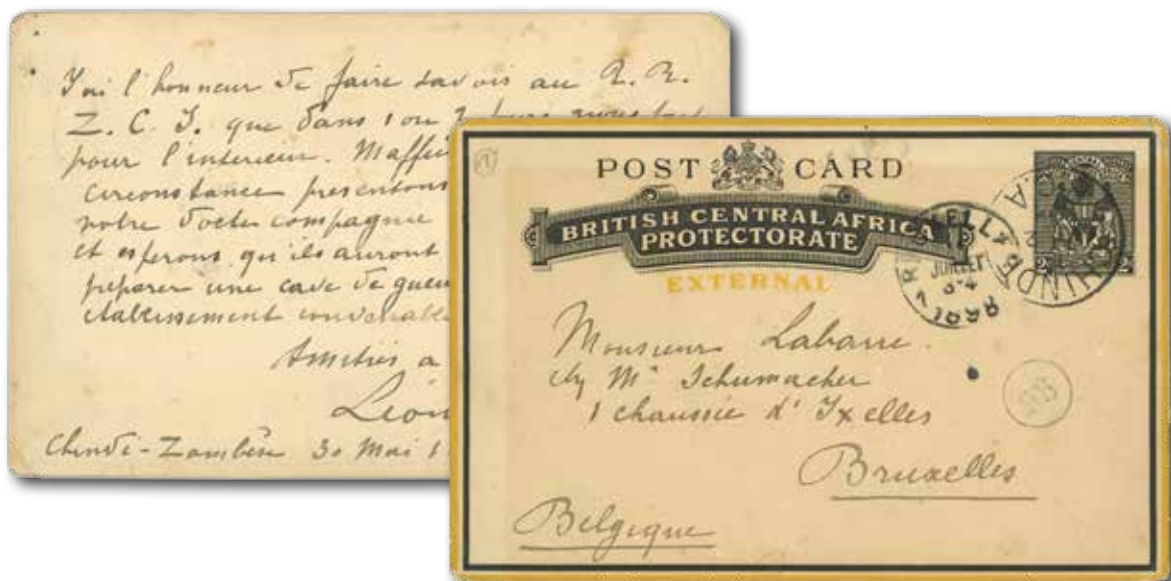 J'ai l'honneur de faire savoir au R. R.
Z. C. I. que dans 1 ou 2 jours nous
pour l'interieur. Maffei
circonstance presentons
notre docte compagnie
et esperons qu'ils auront
preparer une cave de gueu
etablissement convenable
Amitiés a
Léon
Chindé-Zambèse 30 Mai 1
POST CARD
BRITISH CENTRAL AFRICA
PROTECTORATE
EXTERNAL
CHINDE
JUILLET
3-4
Monsieur Labarre.
chez Mr Schumacher
1 chaussée d'Ixelles
Bruxelles
Belgique